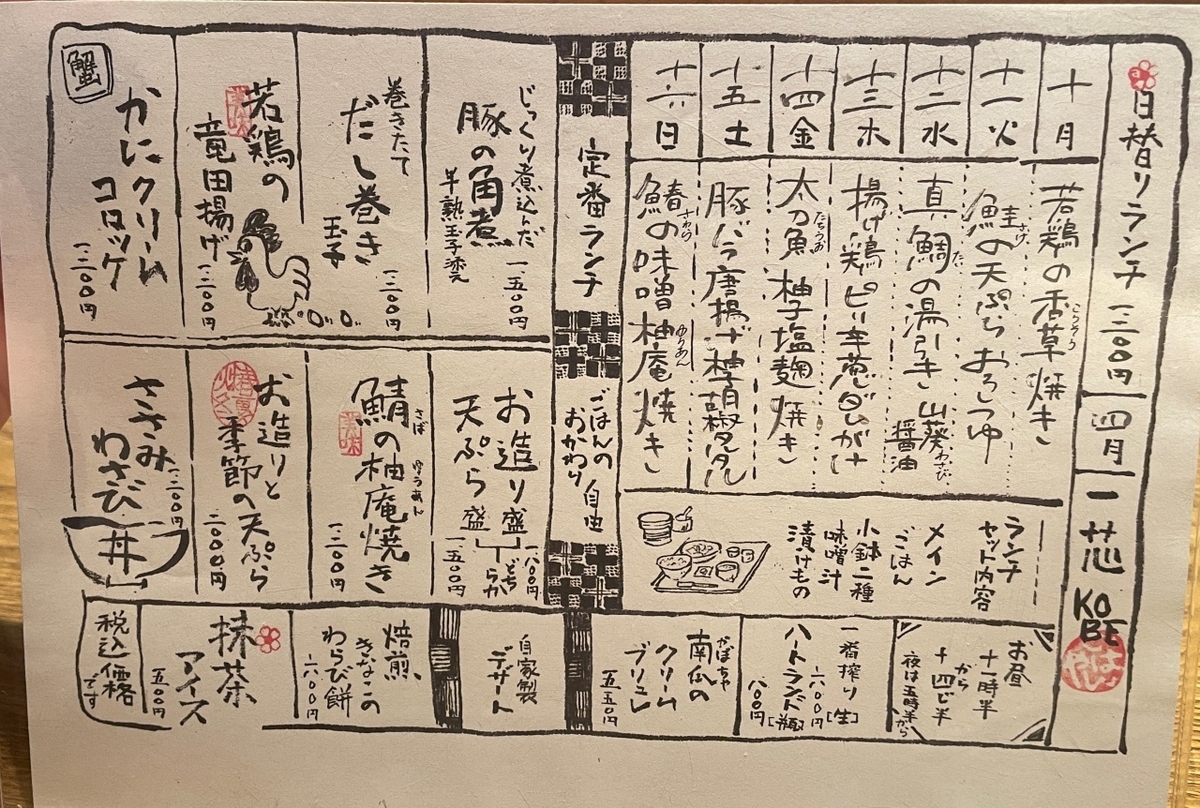 日替りランチ 一二〇〇円
四月
一芯
KOBE
十 月
若鶏の香草焼き
こうそう
十一 火
鮭の天ぷらおろしつゆ
さけ
十二 水
真鯛の湯引き 山葵醤油
たい
わさび
十三 木
揚げ鶏ピリ辛葱ダレがけ
十四 金
太刀魚 柚子塩麹焼き
たちうお
十五 土
豚バラ唐揚げ柚子胡椒タルタル
十六 日
鰆の味噌柚庵焼き
さわら
ゆうあん
ランチ
セット内容
メイン
ごはん
小鉢二種
味噌汁
漬けもの
定番ランチ
ごはんの
おかわり
自由
じっくり煮込んだ
豚の角煮
半熟玉子添え
一五〇〇円
巻きたて
だし巻き
玉子
一二〇〇円
若鶏の
竜田揚げ
美味
一二〇〇円
蟹
かにクリーム
コロッケ
一二〇〇円
お造り盛
一八〇〇円
天ぷら盛
一五〇〇円
どちらか
鯖の柚庵焼き
さば
ゆうあん
美味
一二〇〇円
お造りと
季節の天ぷら
二〇〇〇円
ささみ
わさび
丼
一二〇〇円
お昼
十一時半
から
十四じ半
夜は五時半から
一番搾り[生]
六〇〇円
ハートランド[瓶]
八〇〇円
南瓜の
かぼちゃ
クリーム
ブリュレ
五五〇円
自家製
デザート
焙煎
きなこの
わらび餅
六〇〇円
抹茶
アイス
五〇〇円
税込価格
です